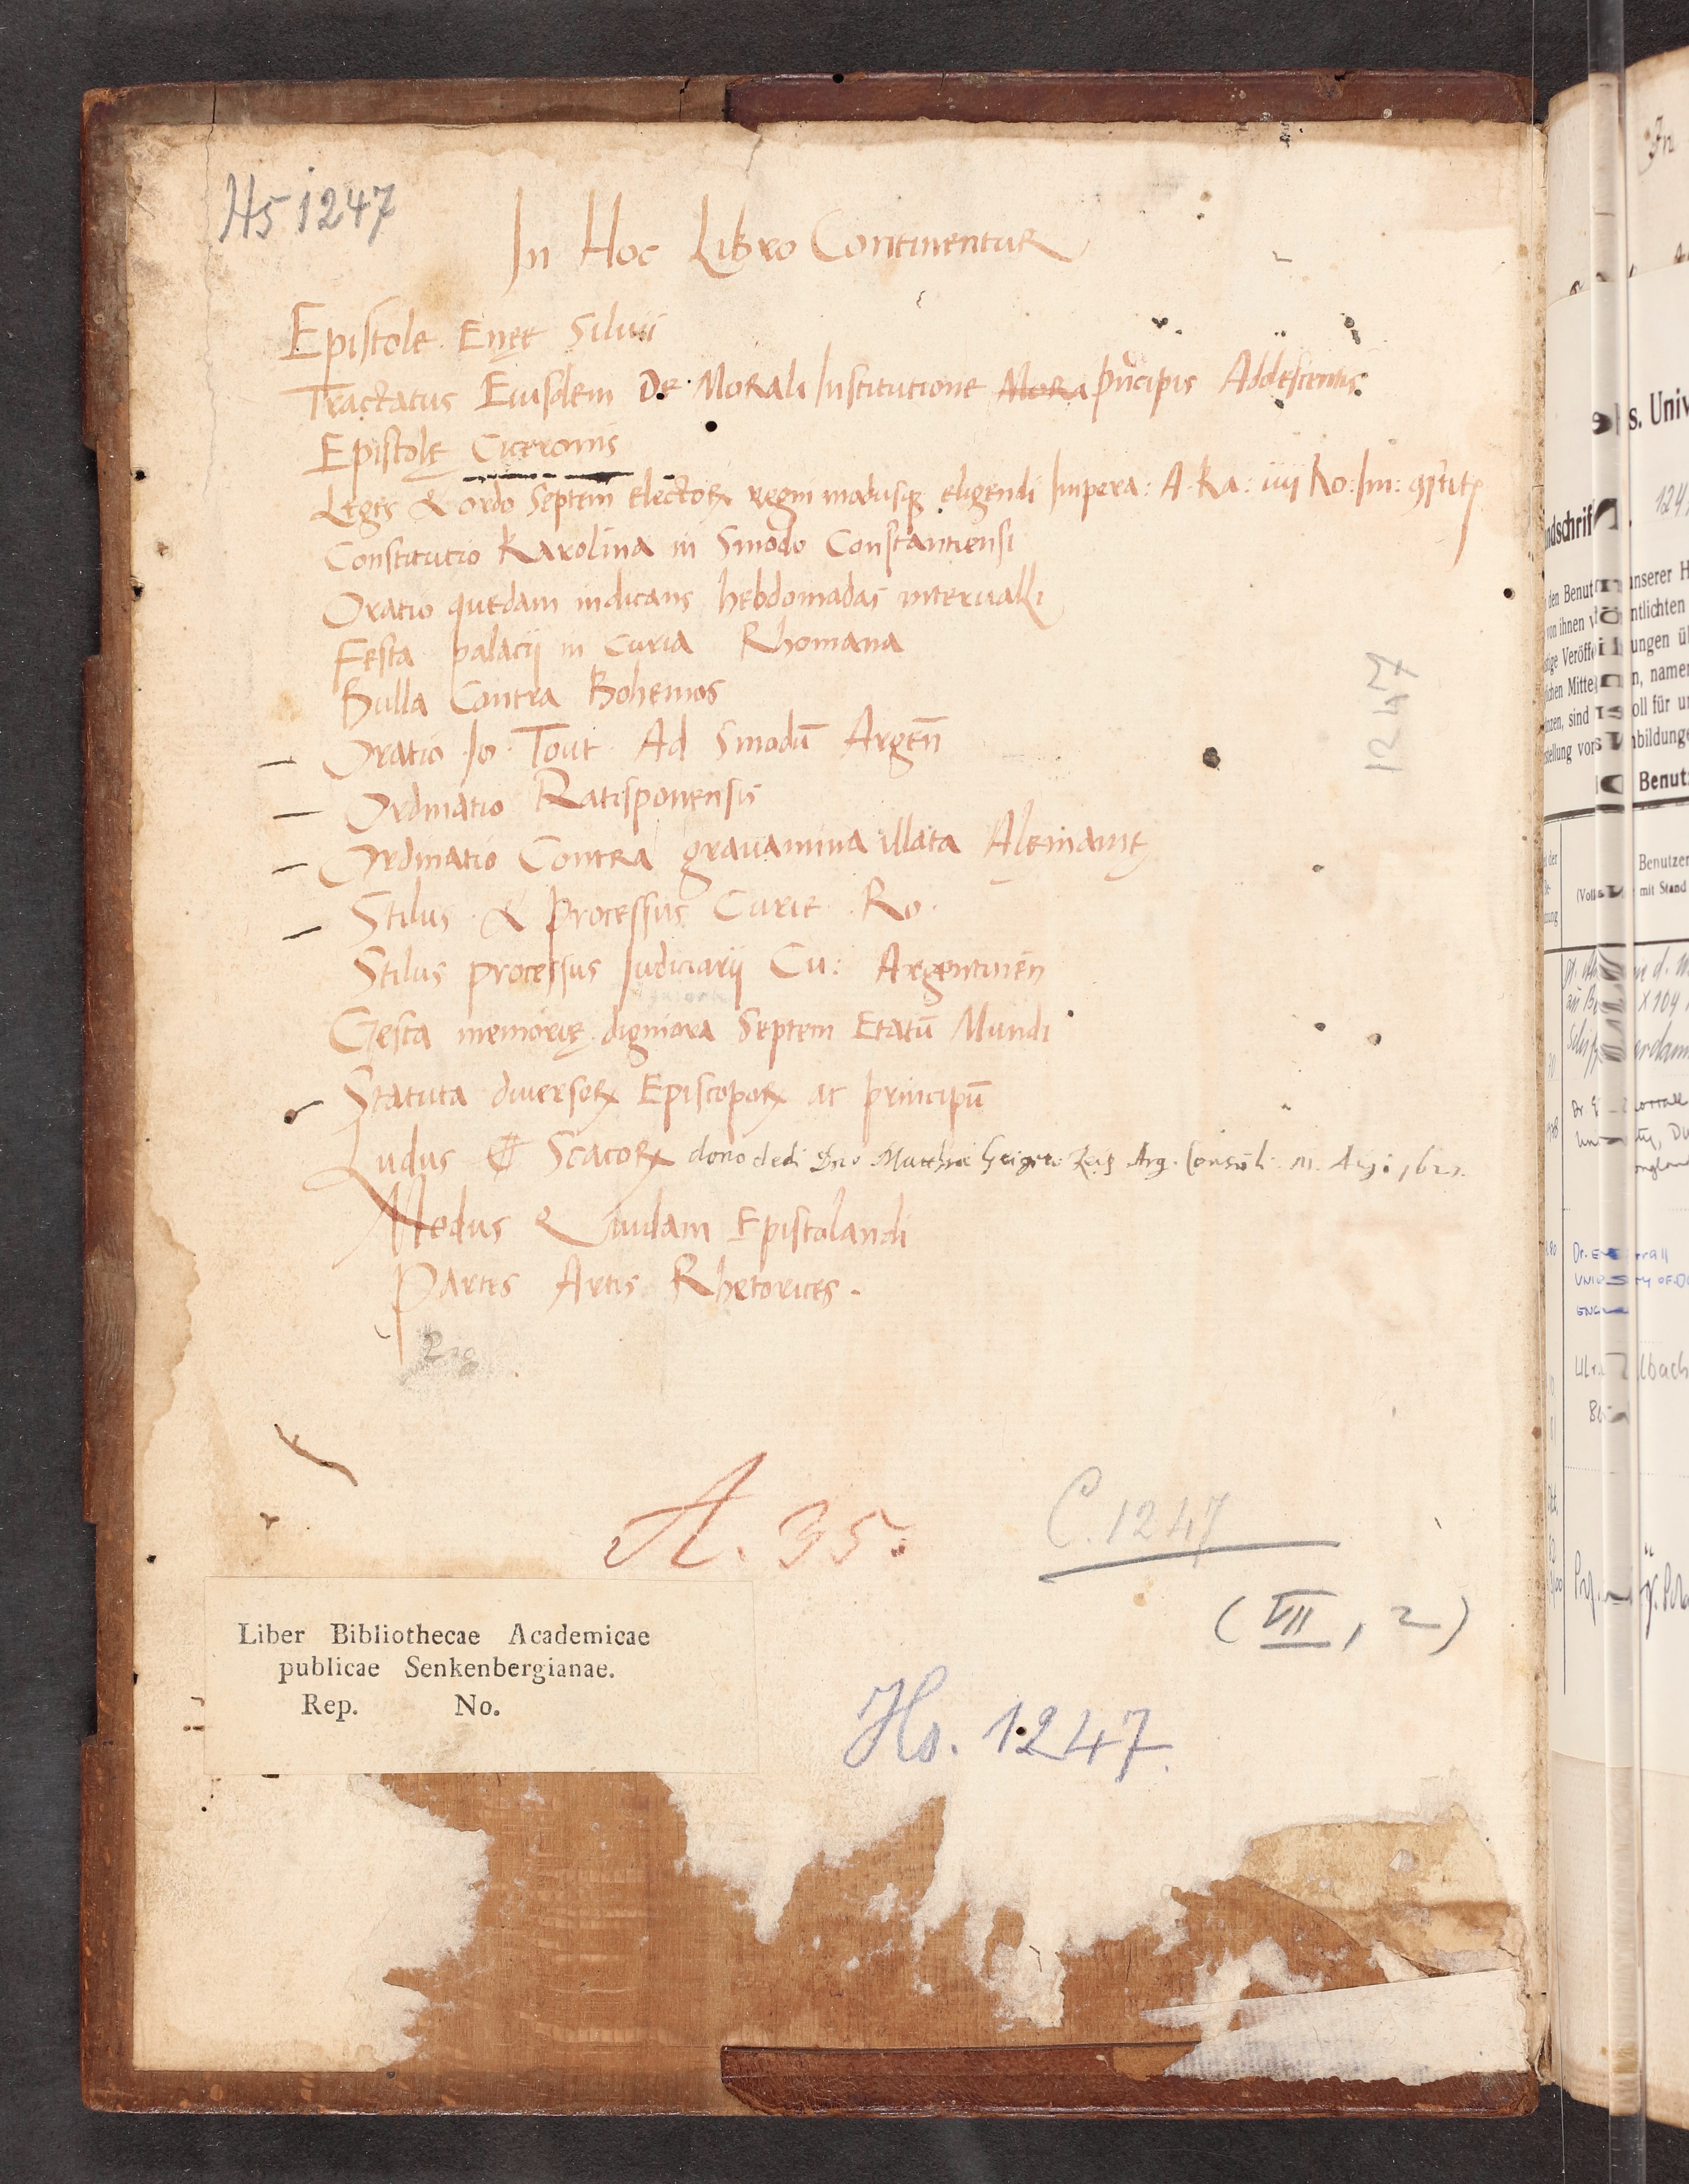 Hs 1247
In Hoc Libro Continentur
Epistole Enęe Siluii
Tractatus Eiusdem De Morali Institutione Mora pͥncipis Adolescentis
Epistolę Ciceronis
Leges & ordo Septem electoꝝ regni modusqꝫ eligendi Impera: A. Ka: iiij Ro: Im:
Constitutio Karolina in Sinodo Constantiensi
Oratio quedam indicans hebdomadas interualli
Festa palacij in Curia Rhomana
Bulla Contra Bohemos
Oratio Io. Tout. Ad Sinodū Argen̄
Ordinatio Ratisponensis
Ordinatio Contra grauamina illata Alemanię
Stilus & processus Curie Ro.
Stilus processus Iudiciarij Cu: Argentinen̄
Gesta memorię digniora Septem Etatū Mundi
Statuta diuersoꝝ Episcopoꝝ ac principū
Ludus Scacoꝝ dono dedi Dno Matthiae Geigero Arg. Consuli
Modus Quidam Epistolandi
Partes Artis Rhetorices.
1247
A. 35.
C. 1247
(VII, 2)
Liber Bibliothecae Academicae
publicae Senkenbergianae.
Rep. No.
Hs. 1247.
In
s. Univ
Benutzer
mit Stand